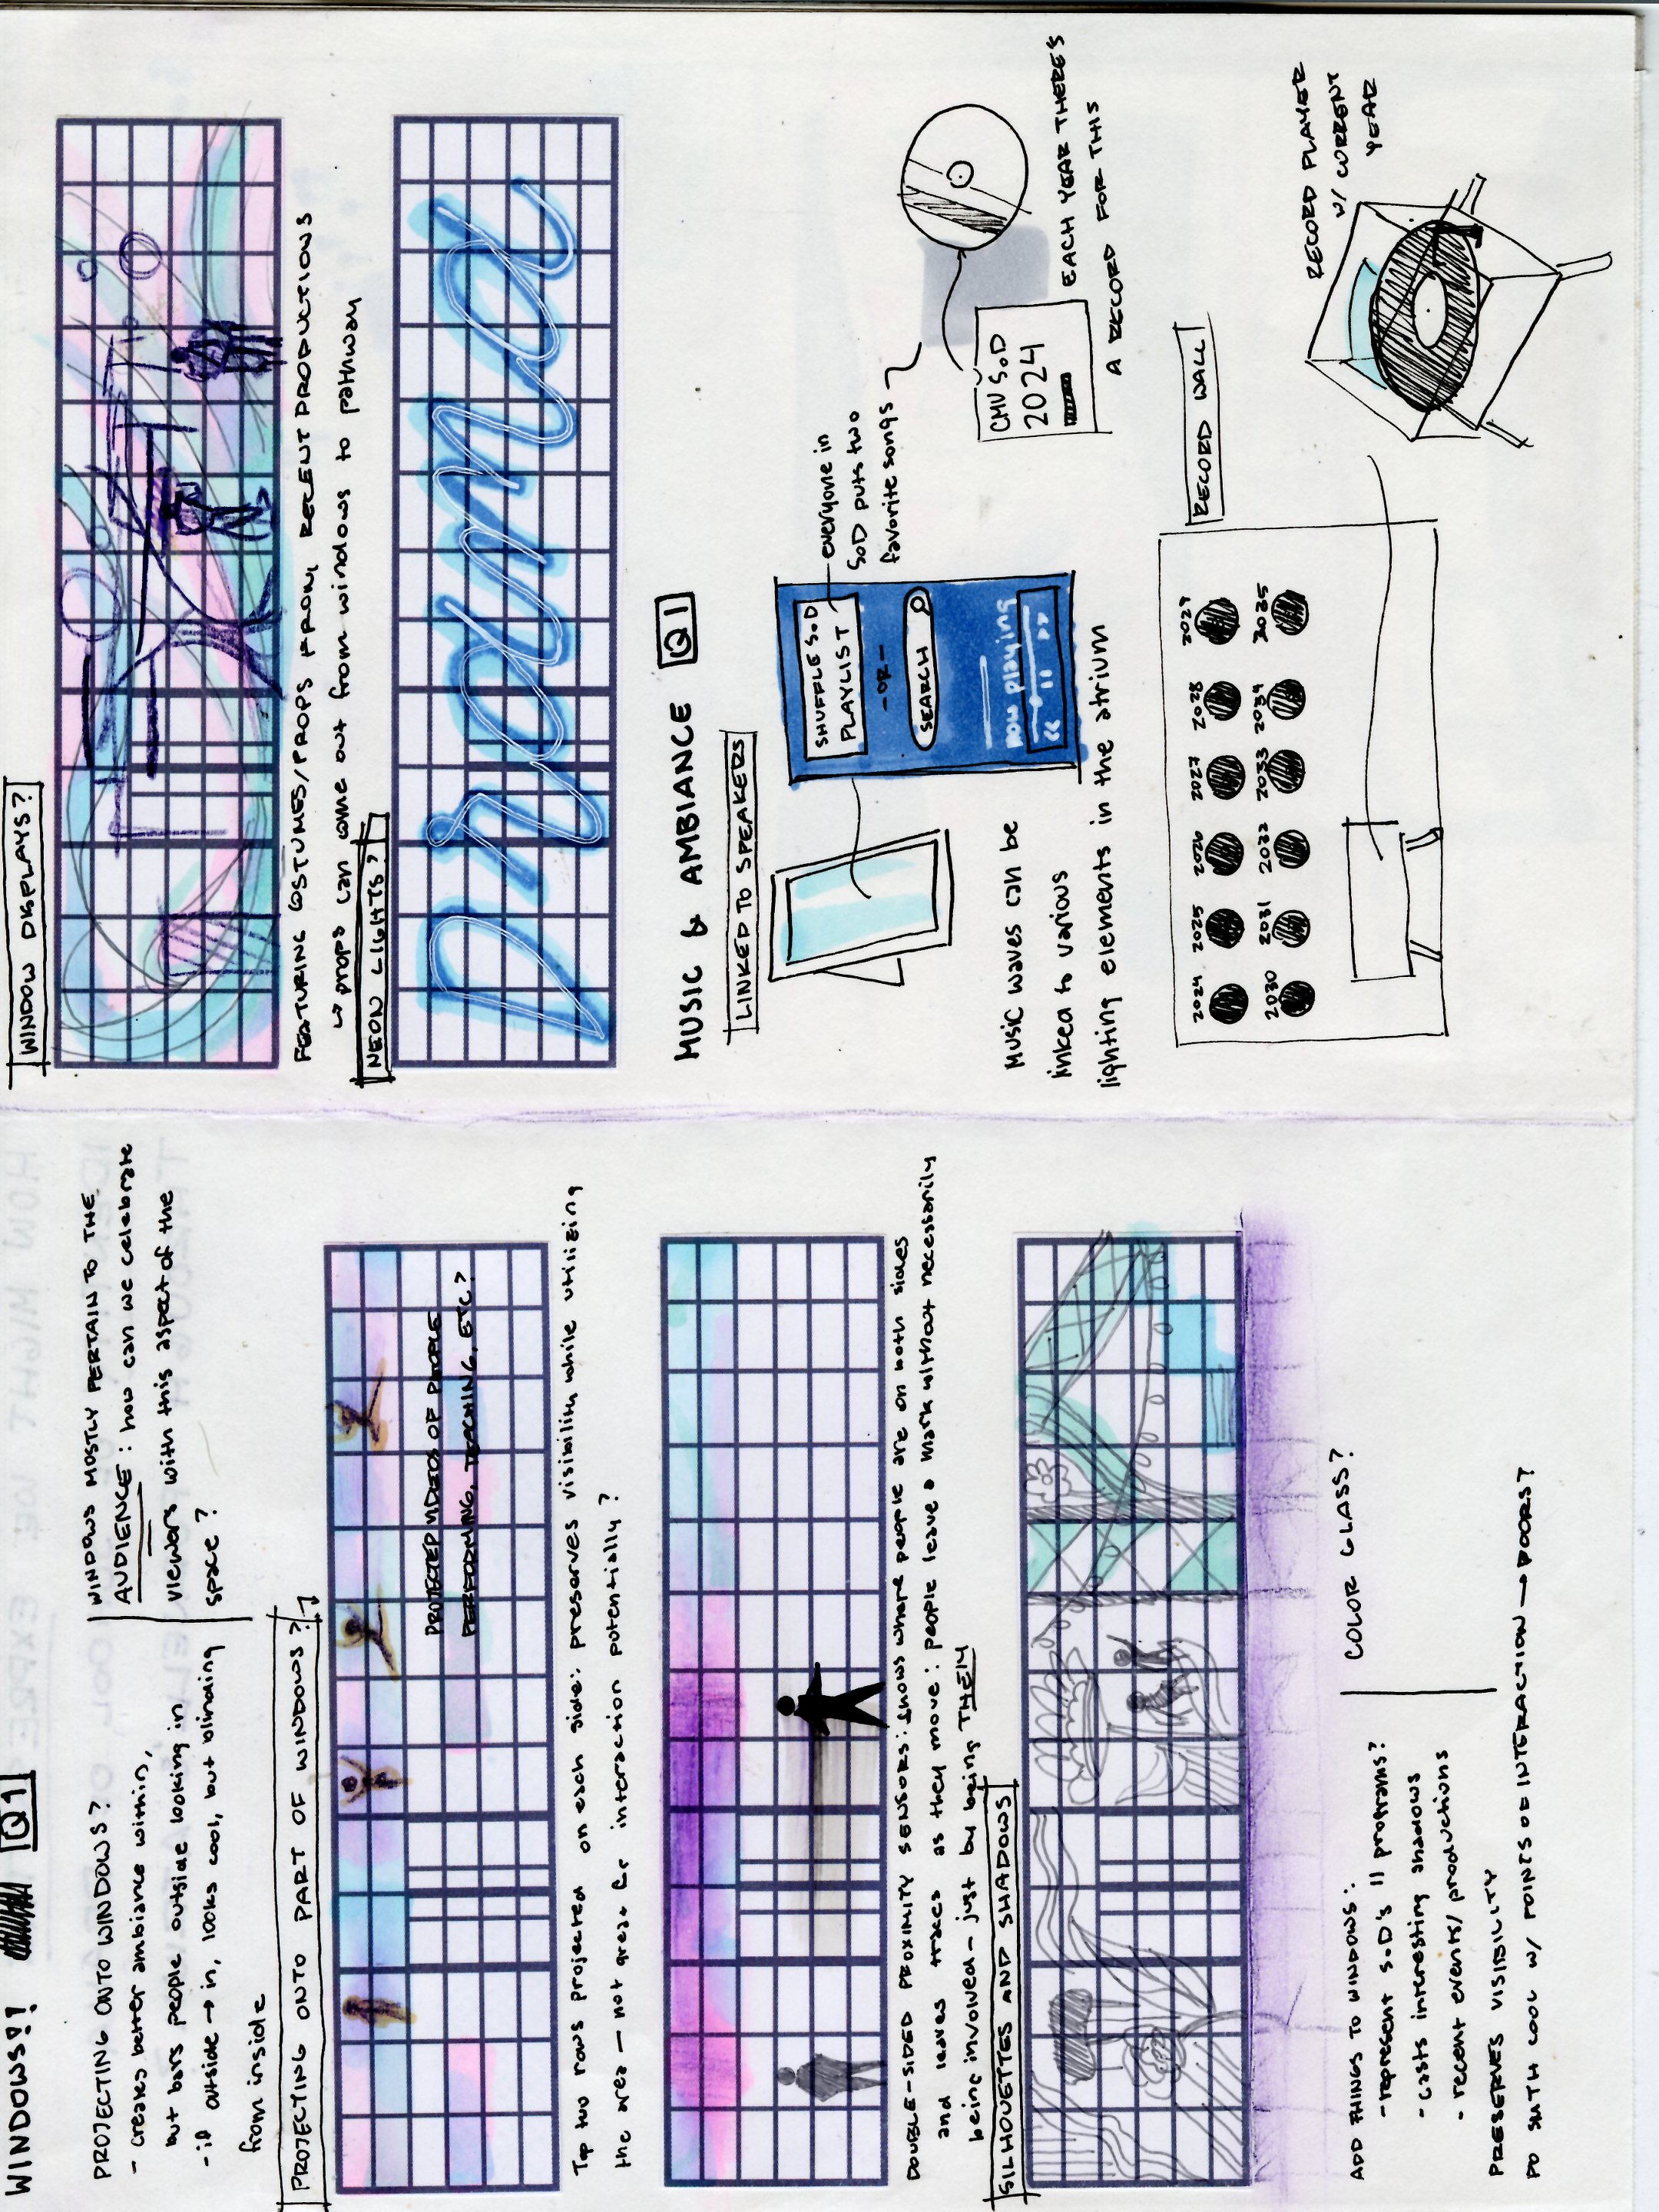 WINDOWS!! Q1
PROJECTING ONTO WINDOWS?
- creates better ambiance within,
but bars people outside looking in
- if outside → in, looks cool, but blinding
from inside
WINDOWS MOSTLY PERTAIN TO THE
AUDIENCE: how can we celebrate
viewers with this aspect of the
space?
PROJECTING ONTO PART OF WINDOWS?
PROJECTED VIDEOS OF PEOPLE
PERFORMING, TEACHING, ETC?
Top two rows projected on each side: preserves visibility while utilizing
the area — not great for interaction potentially?
DOUBLE-SIDED PROXIMITY SENSORS: shows where people are on both sides
and leaves traces as they move: people leave a mark without necessarily
being involved - just by being THEIR
SILHOUETTES AND SHADOWS
ADD THINGS TO WINDOWS:
- represent SoD's 11 programs?
- casts interesting shadows
- recent events/productions
PRESERVES VISIBILITY
DO SMTH COOL W/ POINTS OF INTERACTION → DOORS?
COLOR GLASS?
WINDOW DISPLAYS?
FEATURING COSTUMES/PROPS FROM RECENT PRODUCTIONS
↳ props can come out from windows to pathway
NEON LIGHTS?
Drama
MUSIC & AMBIANCE Q1
LINKED TO SPEAKERS
SHUFFLE SoD
PLAYLIST
- OR -
SEARCH
now playing
everyone in
SoD puts two
favorite songs
Music waves can be
linked to various
lighting elements in the atrium
CMU SoD
2024
EACH YEAR THERE'S
A RECORD FOR THIS
2024 2025 2026 2027 2028 2029
2030 2031 2032 2033 2034 2035
RECORD WALL
RECORD PLAYER
W/ CURRENT
YEAR